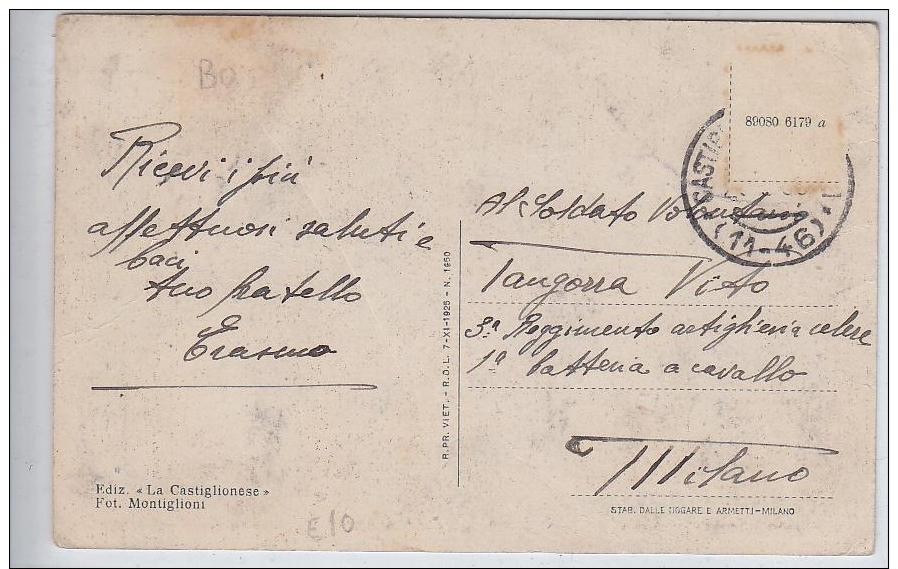 Bo
Ricevi i più
affettuosi saluti e
baci
tuo fratello
Erasmo
Ediz. « La Castiglionese »
Fot. Montiglioni
E10
R. PR. VIET. - R.D.L. 7-XI-1925 - N. 1950
89080 6179 a
(11-46)
Al Soldato Volontario
Tangorra Vito
3ª Reggimento artiglieria celere
1ª batteria a cavallo
Milano
STAB. DALLE NOGARE E ARMETTI - MILANO